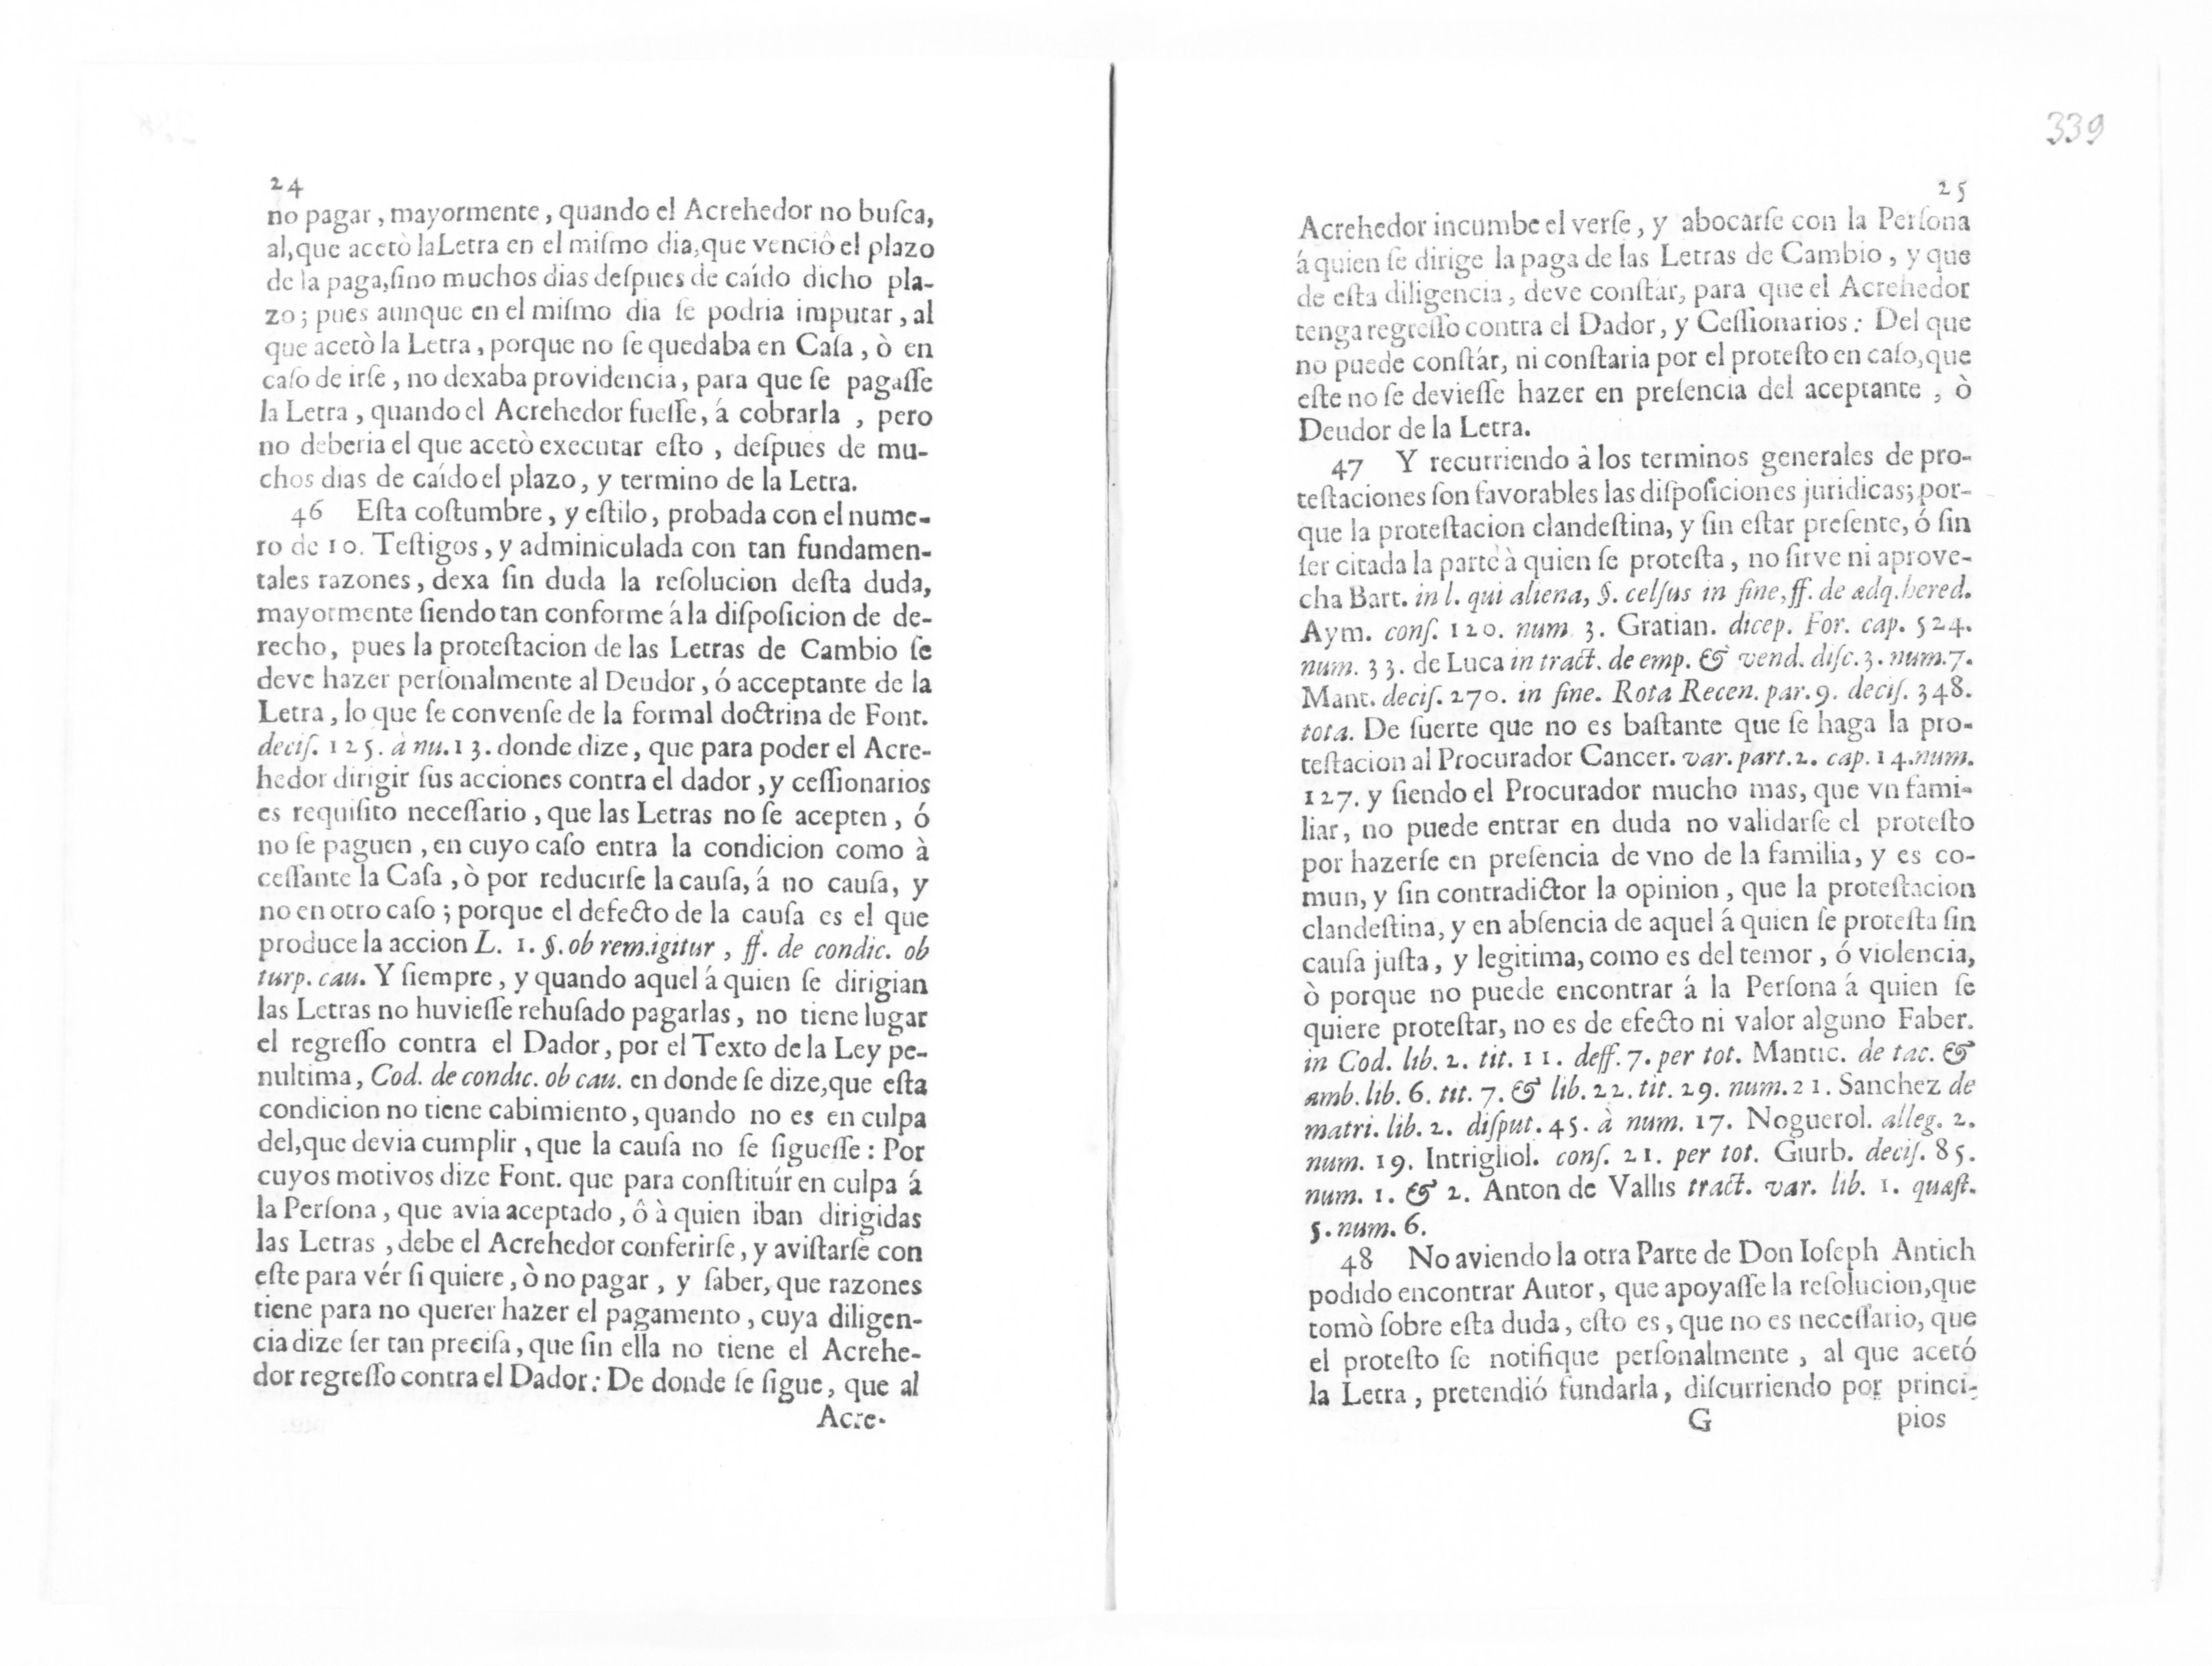 24
no pagar, mayormente, quando el Acrehedor no buſca,
al,que acetò la Letra en el miſmo dia,que venciô el plazo
de la paga,ſino muchos dias deſpues de caído dicho pla-
zo; pues aunque en el miſmo dia ſe podria imputar, al
que acetò la Letra, porque no ſe quedaba en Caſa, ò en
caſo de irſe, no dexaba providencia, para que ſe pagaſſe
la Letra, quando el Acrehedor fueſſe, á cobrarla , pero
no deberia el que acetò executar eſto , deſpues de mu-
chos dias de caído el plazo, y termino de la Letra.
46 Eſta coſtumbre, y eſtilo, probada con el nume-
ro de 10. Teſtigos, y adminiculada con tan fundamen-
tales razones, dexa ſin duda la reſolucion deſta duda,
mayormente ſiendo tan conforme á la diſpoſicion de de-
recho, pues la proteſtacion de las Letras de Cambio ſe
deve hazer perſonalmente al Deudor, ó acceptante de la
Letra, lo que ſe convenſe de la formal doctrina de Font.
deciſ. 125. à nu.13. donde dize, que para poder el Acre-
hedor dirigir ſus acciones contra el dador, y ceſſionarios
es requiſito neceſſario, que las Letras no ſe acepten, ó
no ſe paguen, en cuyo caſo entra la condicion como à
ceſſante la Caſa, ò por reducirſe la cauſa, á no cauſa, y
no en otro caſo; porque el defecto de la cauſa es el que
produce la accion L. 1. §. ob rem.igitur , ff. de condic. ob
turp. cau. Y ſiempre, y quando aquel á quien ſe dirigian
las Letras no huvieſſe rehuſado pagarlas, no tiene lugar
el regreſſo contra el Dador, por el Texto de la Ley pe-
nultima, Cod. de condic. ob cau. en donde ſe dize,que eſta
condicion no tiene cabimiento, quando no es en culpa
del,que devia cumplir, que la cauſa no ſe ſigueſſe: Por
cuyos motivos dize Font. que para conſtituír en culpa á
la Perſona, que avia aceptado, ô à quien iban dirigidas
las Letras, debe el Acrehedor conferirſe, y aviſtarſe con
eſte para vér ſi quiere, ò no pagar, y ſaber, que razones
tiene para no querer hazer el pagamento, cuya diligen-
cia dize ſer tan preciſa, que ſin ella no tiene el Acrehe-
dor regreſſo contra el Dador: De donde ſe ſigue, que al
Acre-
339
25
Acrehedor incumbe el verſe, y abocarſe con la Perſona
á quien ſe dirige la paga de las Letras de Cambio, y que
de eſta diligencia, deve conſtár, para que el Acrehedor
tenga regreſſo contra el Dador, y Ceſſionarios: Del que
no puede conſtár, ni conſtaria por el proteſto en caſo,que
eſte no ſe devieſſe hazer en preſencia del aceptante , ò
Deudor de la Letra.
47 Y recurriendo à los terminos generales de pro-
teſtaciones ſon favorables las diſpoſiciones juridicas; por-
que la proteſtacion clandeſtina, y ſin eſtar preſente, ó ſin
ſer citada la parte à quien ſe proteſta, no ſirve ni aprove-
cha Bart. in l. qui aliena, §. celſus in fine,ff. de adq.hered.
Aym. conſ. 120. num 3. Gratian. dicep. For. cap. 524.
num. 33. de Luca in tract. de emp. & vend. diſc.3. num.7.
Mant. deciſ. 270. in fine. Rota Recen. par. 9. deciſ. 348.
tota. De ſuerte que no es baſtante que ſe haga la pro-
teſtacion al Procurador Cancer. var. part.2. cap. 14.num.
127. y ſiendo el Procurador mucho mas, que vn fami-
liar, no puede entrar en duda no validarſe el proteſto
por hazerſe en preſencia de vno de la familia, y es co-
mun, y ſin contradictor la opinion, que la proteſtacion
clandeſtina, y en abſencia de aquel á quien ſe proteſta ſin
cauſa juſta, y legitima, como es del temor, ó violencia,
ò porque no puede encontrar á la Perſona á quien ſe
quiere proteſtar, no es de efecto ni valor alguno Faber.
in Cod. lib. 2. tit. 11. deff. 7. per tot. Mantic. de tac. &
amb. lib. 6. tit. 7. & lib. 22. tit. 29. num.21. Sanchez de
matri. lib. 2. diſput. 45. à num. 17. Noguerol. alleg. 2.
num. 19. Intrigliol. conſ. 21. per tot. Giurb. deciſ. 85.
num. 1. & 2. Anton de Vallis tract. var. lib. 1. quæſt.
5. num. 6.
48 No aviendo la otra Parte de Don Ioſeph Antich
podido encontrar Autor, que apoyaſſe la reſolucion,que
tomò ſobre eſta duda, eſto es, que no es neceſſario, que
el proteſto ſe notifique perſonalmente, al que acetó
la Letra, pretendió fundarla, diſcurriendo por princi-
G pios